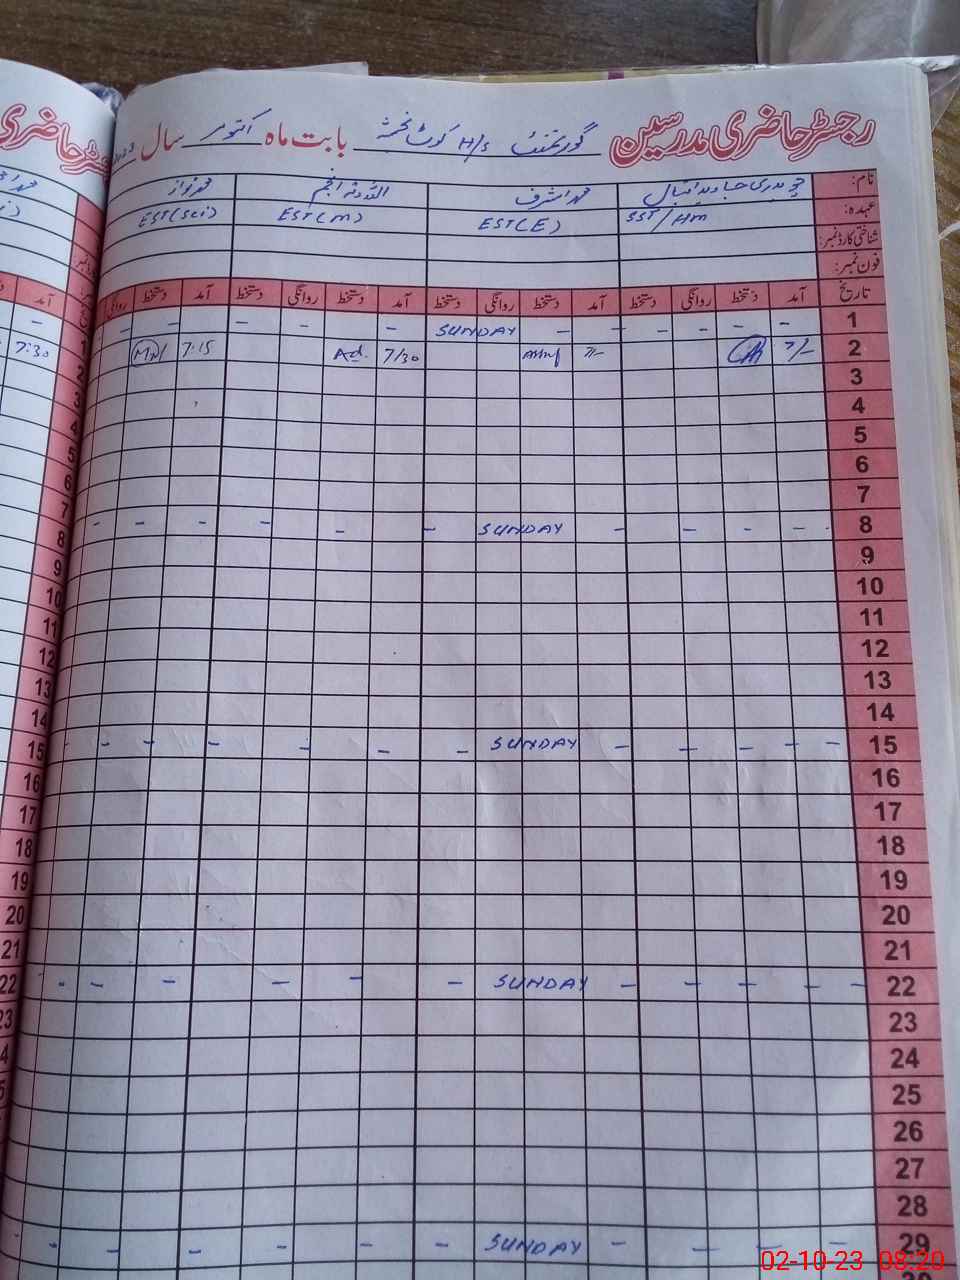 رجسٹر حاضری مدرسین گورنمنٹ H/S کوٹ بابت ماہ اکتوبر سال
نام: چوہدری جاوید اقبال محمد اشرف اللہ دتہ انجم محمد نواز
عہدہ: SST/HM EST(E) EST(M) EST(Sci)
شناختی کارڈ نمبر:
فون نمبر:
تاریخ آمد دستخط روانگی دستخط آمد دستخط روانگی دستخط آمد دستخط روانگی دستخط آمد دستخط روانگی
1 - - - - - - SUNDAY - - - - -
2 7/- 7/- Ashraf 7/30 Ad. 7:15 7:30
3
4
5
6
7
8 - - - - - SUNDAY - - - - - -
9
10
11
12
13
14
15 - - - - - SUNDAY - - - - - -
16
17
18
19
20
21
22 - - - - - SUNDAY - - - - - -
23
24
25
26
27
28
29 - - - - SUNDAY - - - - - -
02-10-23 08:20